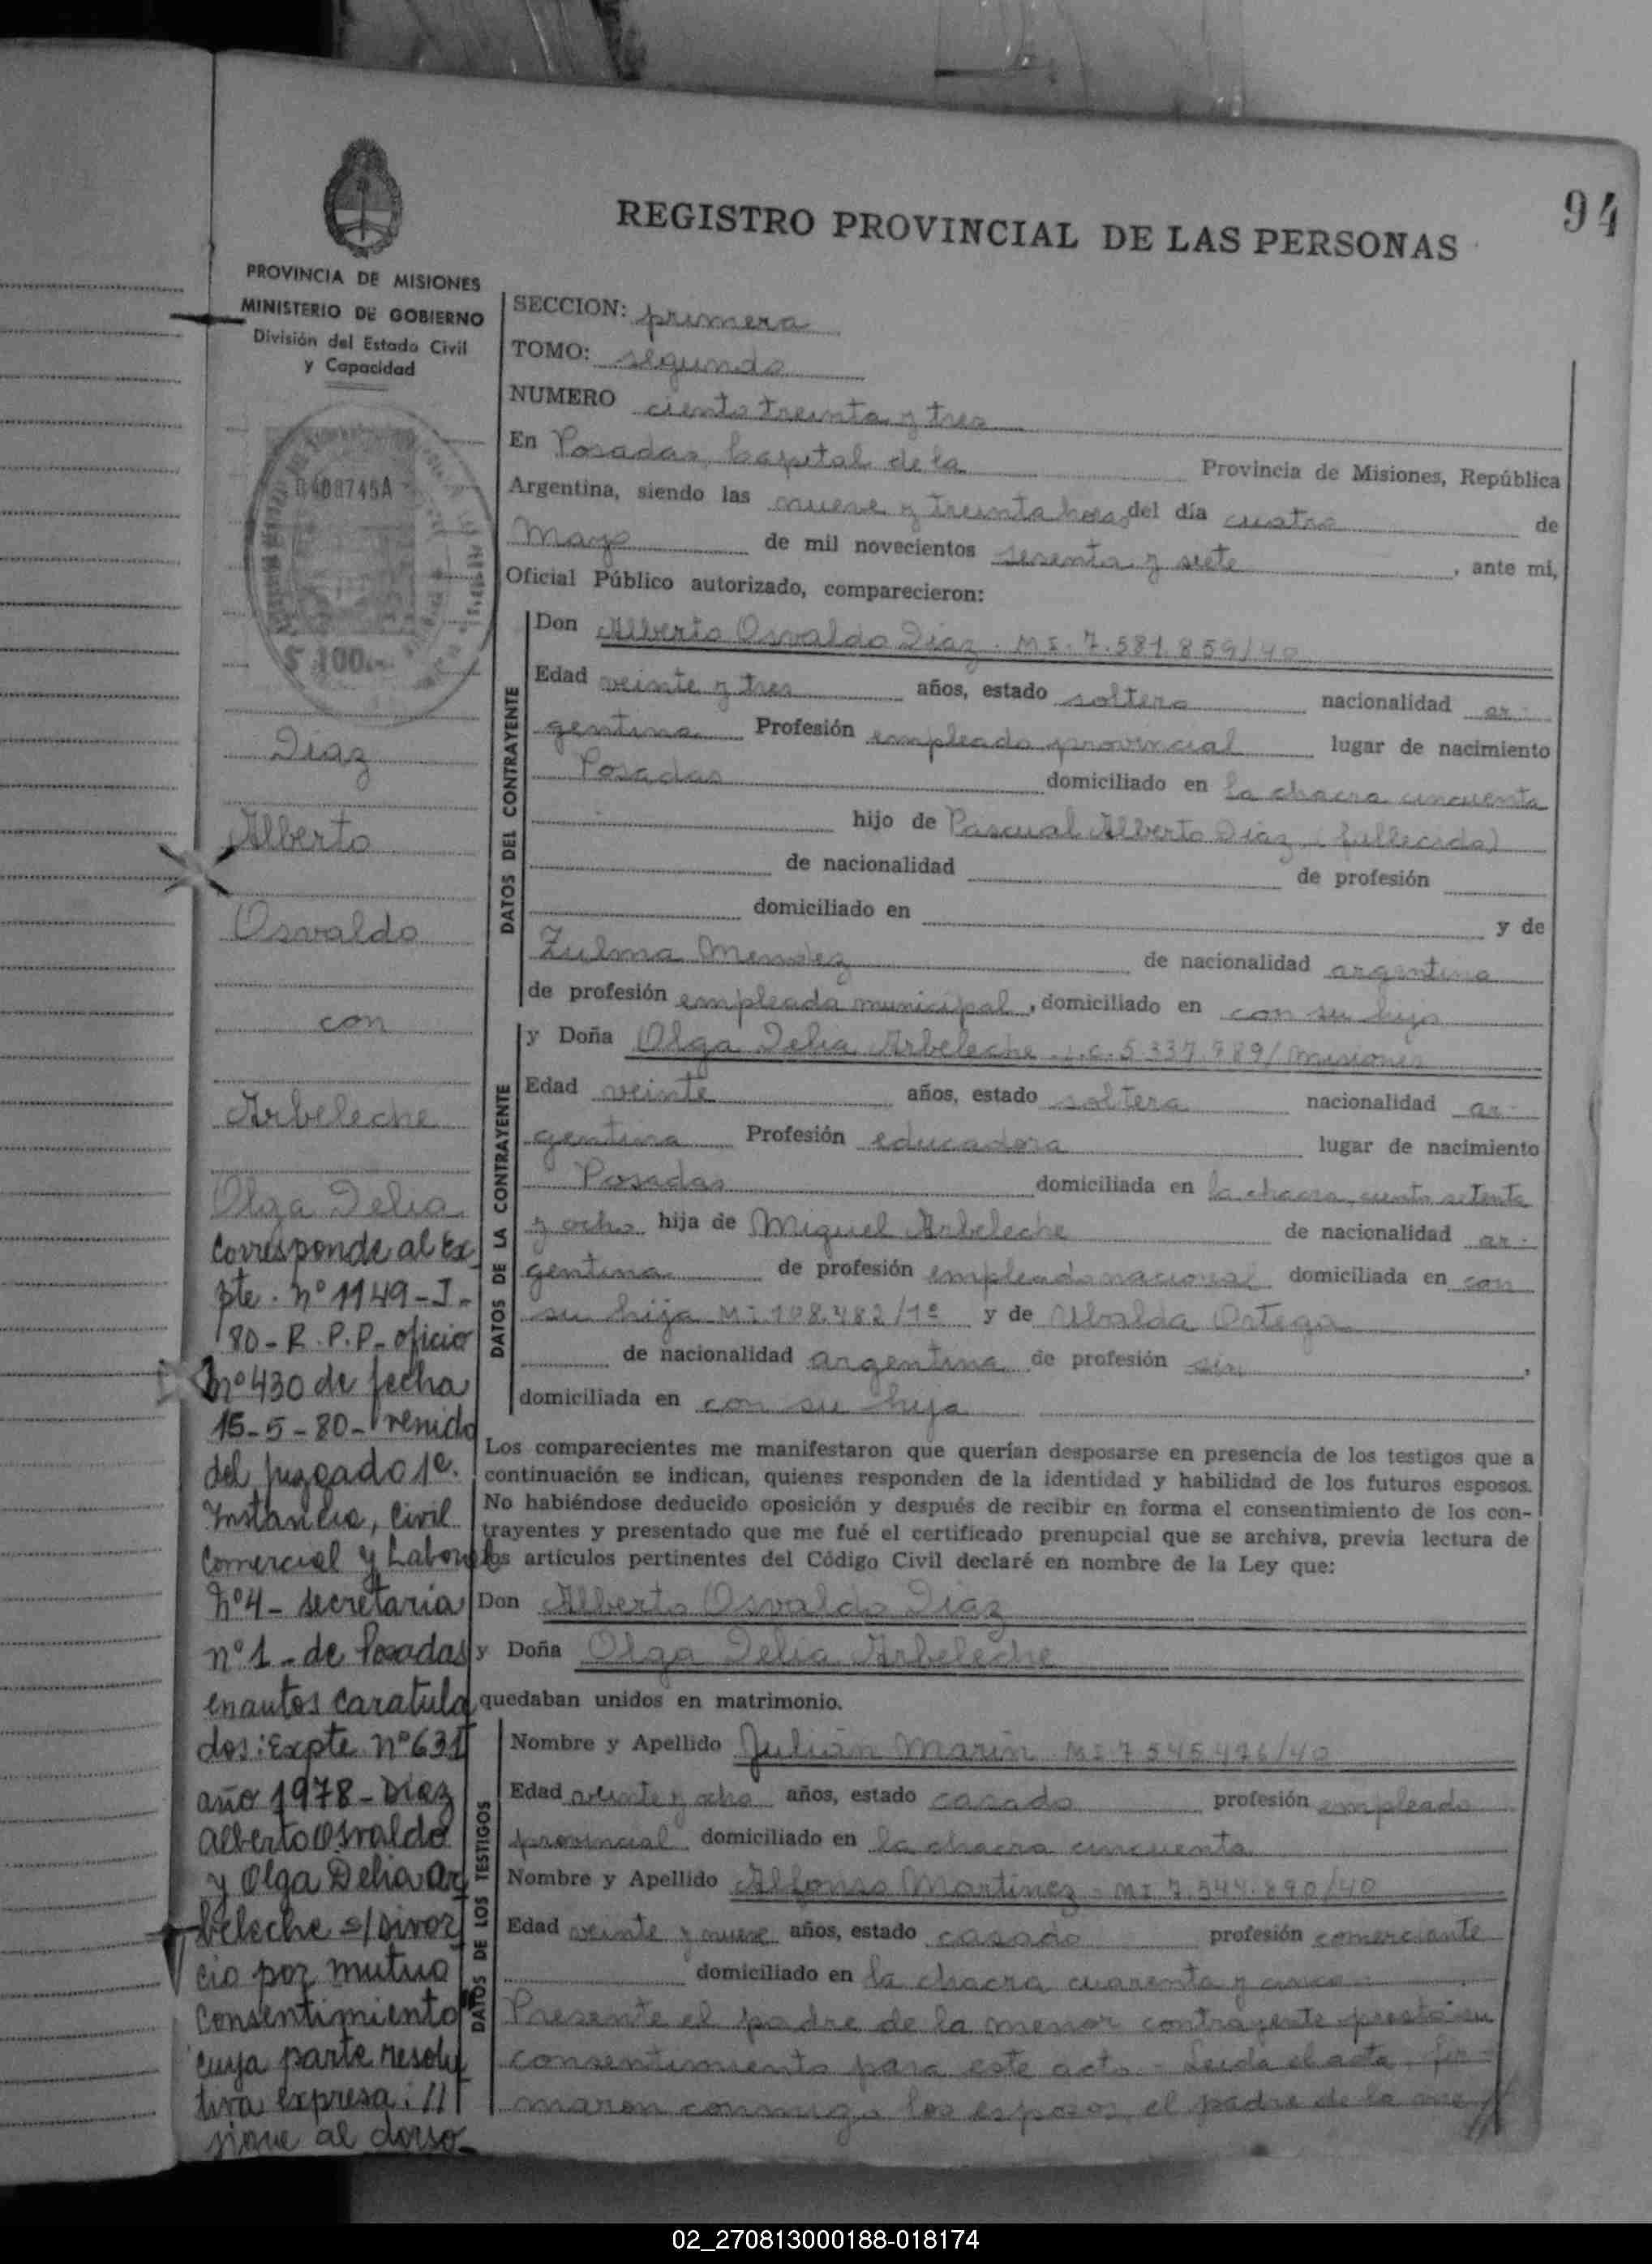 94
REGISTRO PROVINCIAL DE LAS PERSONAS
PROVINCIA DE MISIONES
MINISTERIO DE GOBIERNO
División del Estado Civil
y Capacidad
0408745A
$ 100.-
Díaz
Alberto
Osvaldo
con
Arbeleche
Olga Delia
Corresponde al Ex
pte. nº 1149-I-
80-R.P.P- oficio
nº 430 de fecha
15-5-80- venido
del Juzgado 1º.
Instancia, Civil
Comercial y Laboral
nº 4- secretaria
nº 1- de Posadas
en autos caratula
dos: Expte nº 631
año 1978- Diaz
Alberto Osvaldo
y Olga Delia Ar
beleche s/Divor
cio por mutuo
consentimiento
cuya parte resolu
tiva expresa: //
sigue al dorso-
SECCION: primera
TOMO: segundo
NUMERO ciento treinta y tres
En Posadas, Capital de la Provincia de Misiones, República
Argentina, siendo las nueve y treinta horas del día cuatro de
Mayo de mil novecientos sesenta y siete, ante mi,
Oficial Público autorizado, comparecieron:
DATOS DEL CONTRAYENTE
Don Alberto Osvaldo Diaz. M I. 7.581.859/40
Edad veinte y tres años, estado soltero nacionalidad ar-
gentina Profesión empleado provincial lugar de nacimiento
Posadas domiciliado en la chacra cincuenta
hijo de Pascual Alberto Diaz (fallecido)
de nacionalidad de profesión
domiciliado en y de
Zulma Mendez de nacionalidad argentina
de profesión empleada municipal, domiciliado en con su hijo
DATOS DE LA CONTRAYENTE
y Doña Olga Delia Arbeleche L.C. 5.337.989/Misiones
Edad veinte años, estado soltera nacionalidad ar-
gentina Profesión educadora lugar de nacimiento
Posadas domiciliada en la chacra ciento setenta
y ocho hija de Miguel Arbeleche de nacionalidad ar-
gentina de profesión empleado nacional domiciliada en con
su hija MI. 108.482/1º y de Ubalda Ortega
de nacionalidad argentina de profesión sin,
domiciliada en con su hija
Los comparecientes me manifestaron que querían desposarse en presencia de los testigos que a
continuación se indican, quienes responden de la identidad y habilidad de los futuros esposos.
No habiéndose deducido oposición y después de recibir en forma el consentimiento de los con-
trayentes y presentado que me fué el certificado prenupcial que se archiva, previa lectura de
los artículos pertinentes del Código Civil declaré en nombre de la Ley que:
Don Alberto Osvaldo Diaz
y Doña Olga Delia Arbeleche
quedaban unidos en matrimonio.
DATOS DE LOS TESTIGOS
Nombre y Apellido Julián Marin MI 7.545.426/40
Edad veinte y ocho años, estado casado profesión empleado
provincial domiciliado en la chacra cincuenta
Nombre y Apellido Alfonso Martinez - MI 7.544.890/40
Edad veinte y nueve años, estado casado profesión comerciante
domiciliado en la chacra cuarenta y cinco
Presente el padre de la menor contrayente prestó su
consentimiento para este acto.- Leida el acta, fir-
maron conmigo los esposos, el padre de la me //
02_270813000188-018174